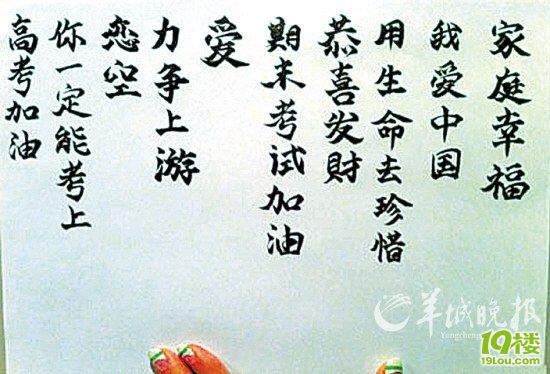 家庭幸福
我爱中国
用生命去珍惜
恭喜发财
期末考试加油
爱
力争上游
恋空
你一定能考上
高考加油
羊城晚报
19楼
19Lou.com